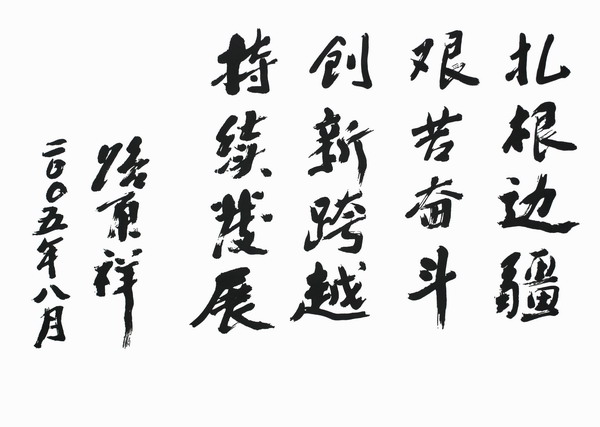 扎根边疆
艰苦奋斗
创新跨越
持续发展
路甬祥
二〇〇五年八月